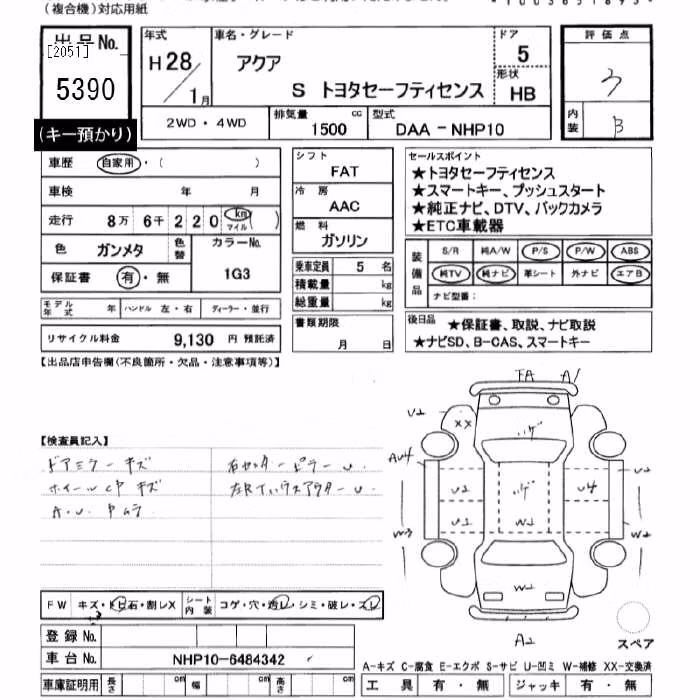 (複合機)対応用紙
出品No.
[2051]
5390
(キー預かり)
年式
H28/1月
車名・グレード
アクア
S トヨタセーフティセンス
ドア
5
形状
HB
評価点
内装
B
2WD・4WD
排気量
1500 cc
型式
DAA-NHP10
車歴 自家用・( )
車検 年 月
走行 8万 6千 220 km マイル ( )
色 ガンメタ 色替
カラーNo.
1G3
保証書 有・無
シフト
FAT
冷房
AAC
燃料
ガソリン
乗車定員 5 名
積載量 kg
総重量 kg
セールスポイント
★トヨタセーフティセンス
★スマートキー、プッシュスタート
★純正ナビ、DTV、バックカメラ
★ETC車載器
装備品
S/R 純A/W P/S P/W ABS
純TV 純ナビ 革シート 外ナビ エアB
ナビ型番:
モデル年式 年 ハンドル 左・右 ディーラー・並行
リサイクル料金 9,130 円 預託済
書類期限
月 日
後日品 ★保証書、取説、ナビ取説
★ナビSD、B-CAS、スマートキー
【出品店申告欄(不良箇所・欠品・注意事項等)】
【検査員記入】
ドアミラー キズ
A1
U2
XX
U2
U4
U2
U1
W2
W3
W2
W2
A2
スペア
FW キズ・トビ石・割レX
シート内装 コゲ・穴・透レ・シミ・破レ・スレ
登録No.
車台No. NHP10-6484342
車庫証明用 長さ cm 幅 cm 高さ cm
A-キズ C-腐食 E-エクボ S-サビ U-凹ミ W-補修 XX-交換済
工具 有・無 ジャッキ 有・無